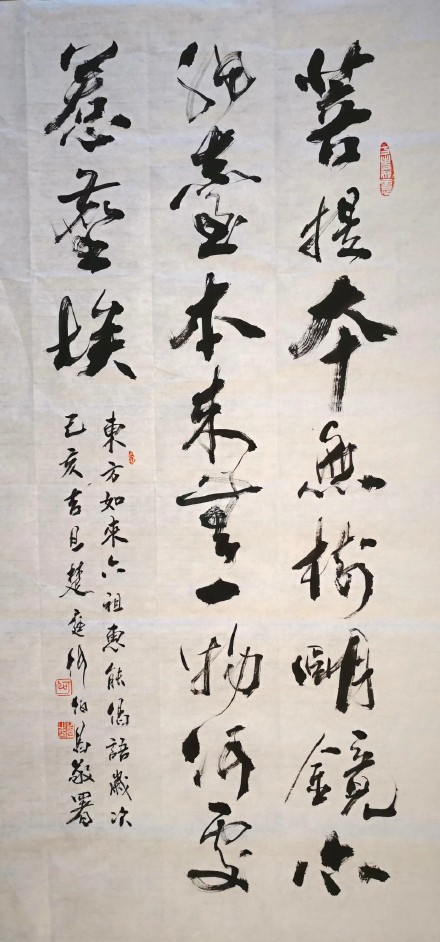 菩提本無樹明鏡亦
非臺本来無一物何處
惹塵埃
東方如來六祖惠能偈語歲次
己亥吉旦楚庭何伯敬署